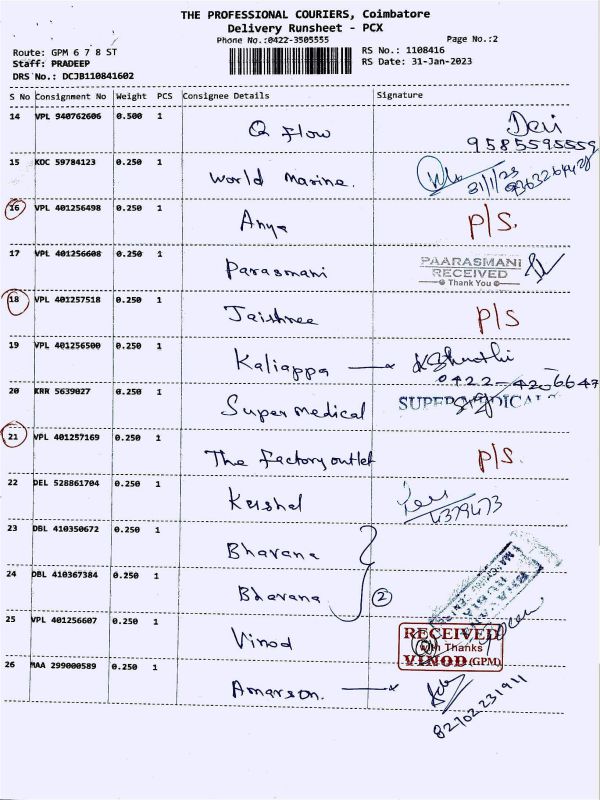 THE PROFESSIONAL COURIERS, Coimbatore
Delivery Runsheet - PCX
Phone No.:0422-3505555
Page No.:2
Route: GPM 6 7 8 ST
RS No.: 1108416
Staff: PRADEEP
RS Date: 31-Jan-2023
DRS No.: DCJB110841602
S No Consignment No Weight PCS Consignee Details Signature
14 VPL 940762606 0.500 1 Q Flow Devi
9585595559
15 KOC 59784123 0.250 1 World Marine. 31/1/23
16 VPL 401256498 0.250 1 Anya P/S.
17 VPL 401256608 0.250 1 Parasmani PAARASMANI
RECEIVED
Thank You
18 VPL 401257518 0.250 1 Jaishree P/S
19 VPL 401256500 0.250 1 Kaliappa
0422-4206647
20 KRR 5639027 0.250 1 Super medical SUPER MEDICALS
21 VPL 401257169 0.250 1 The Factory outlet P/S.
22 DEL 528861704 0.250 1 Kushal
4379473
23 DBL 410350672 0.250 1 Bhavana
24 DBL 410367384 0.250 1 Bhavana 2
25 VPL 401256607 0.250 1 Vinod RECEIVED
with Thanks
VINOD (GPM)
26 MAA 299000589 0.250 1 Amarson.